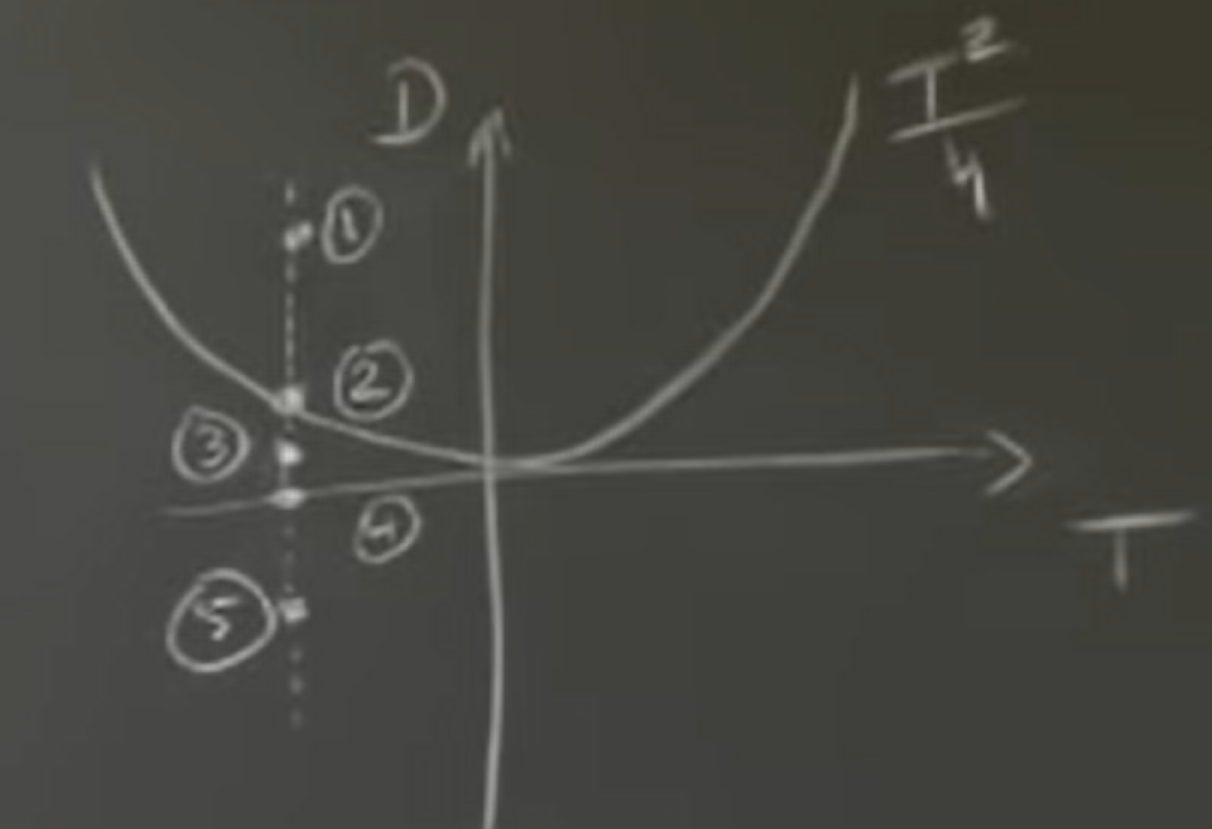 D
T²
4
①
②
③
④
T
⑤